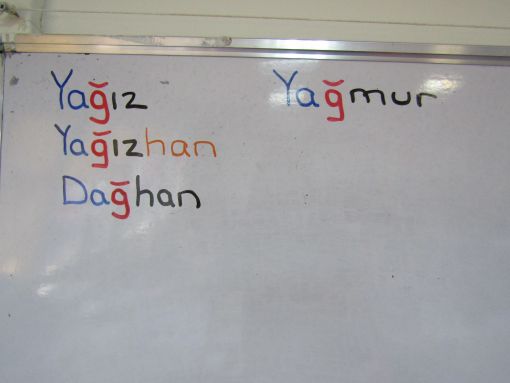 Yağız Yağmur
Yağızhan
Dağhan